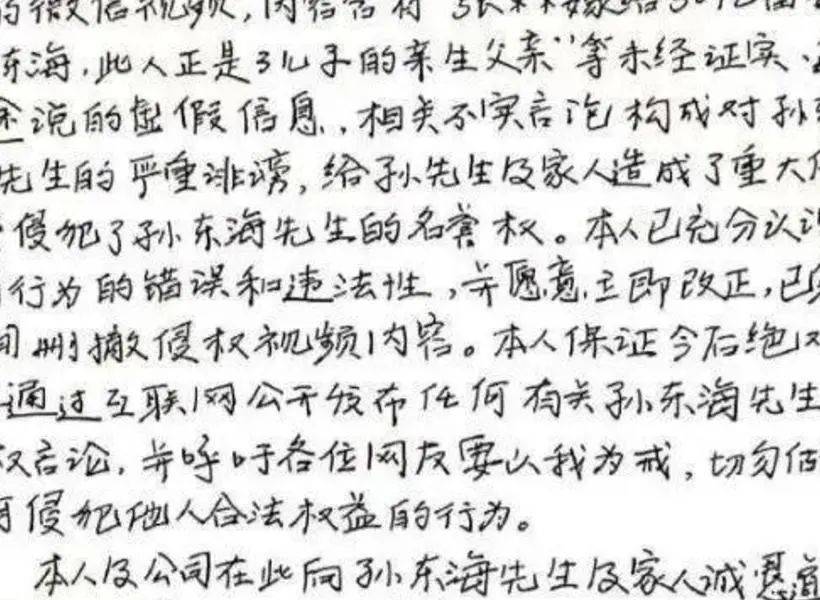 的微信视频,内容含有"
东海,此人正是3儿子的亲生父亲"等未经证实、
述说的虚假信息,相关不实言论构成对孙
先生的严重诽谤,给孙先生及家人造成了重大
侵犯了孙东海先生的名誉权。本人已充分认识
行为的错误和违法性,并愿意立即改正,已
间删撤侵权视频内容。本人保证今后绝
通过互联网公开发布任何有关孙东海先生
权言论,并呼吁各位网友要以我为戒,切勿
侵犯他人合法权益的行为。
本人及公司在此向孙东海先生及家人诚恳道